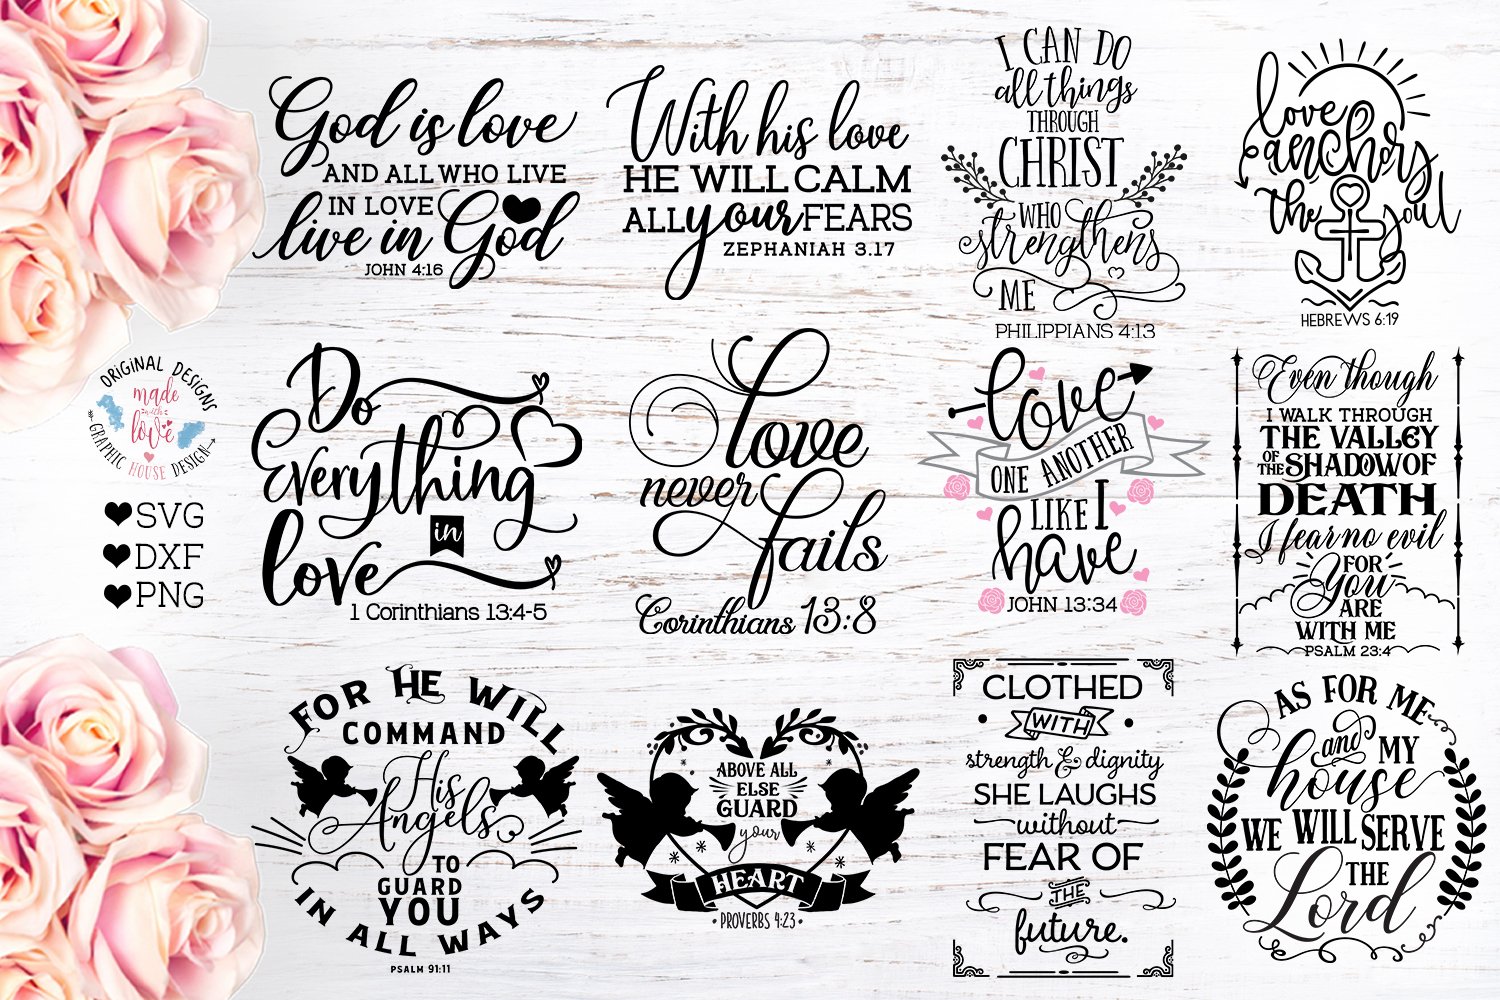 God is love
AND ALL WHO LIVE
IN LOVE
live in God
JOHN 4:16
With his love
HE WILL CALM
ALL your FEARS
ZEPHANIAH 3.17
I CAN DO
all things
THROUGH
CHRIST
WHO
strengthens
ME
PHILIPPIANS 4:13
love
anchors
the soul
HEBREWS 6:19
ORIGINAL DESIGNS
made
with
love
GRAPHIC HOUSE DESIGN
SVG
DXF
PNG
Do
Everything
in
love
1 Corinthians 13:4-5
love
never
fails
Corinthians 13:8
love
ONE ANOTHER
LIKE I
have
JOHN 13:34
Even though
I WALK THROUGH
THE VALLEY
OF THE SHADOW OF
DEATH
I fear no evil
FOR
You
ARE
WITH ME
PSALM 23:4
FOR HE WILL
COMMAND
His
Angels
TO
GUARD
YOU
IN ALL WAYS
PSALM 91:11
ABOVE ALL
ELSE
GUARD
your
HEART
PROVERBS 4:23
CLOTHED
WITH
strength & dignity
SHE LAUGHS
without
FEAR OF
THE
future.
AS FOR ME
and MY
house
WE WILL SERVE
THE
Lord